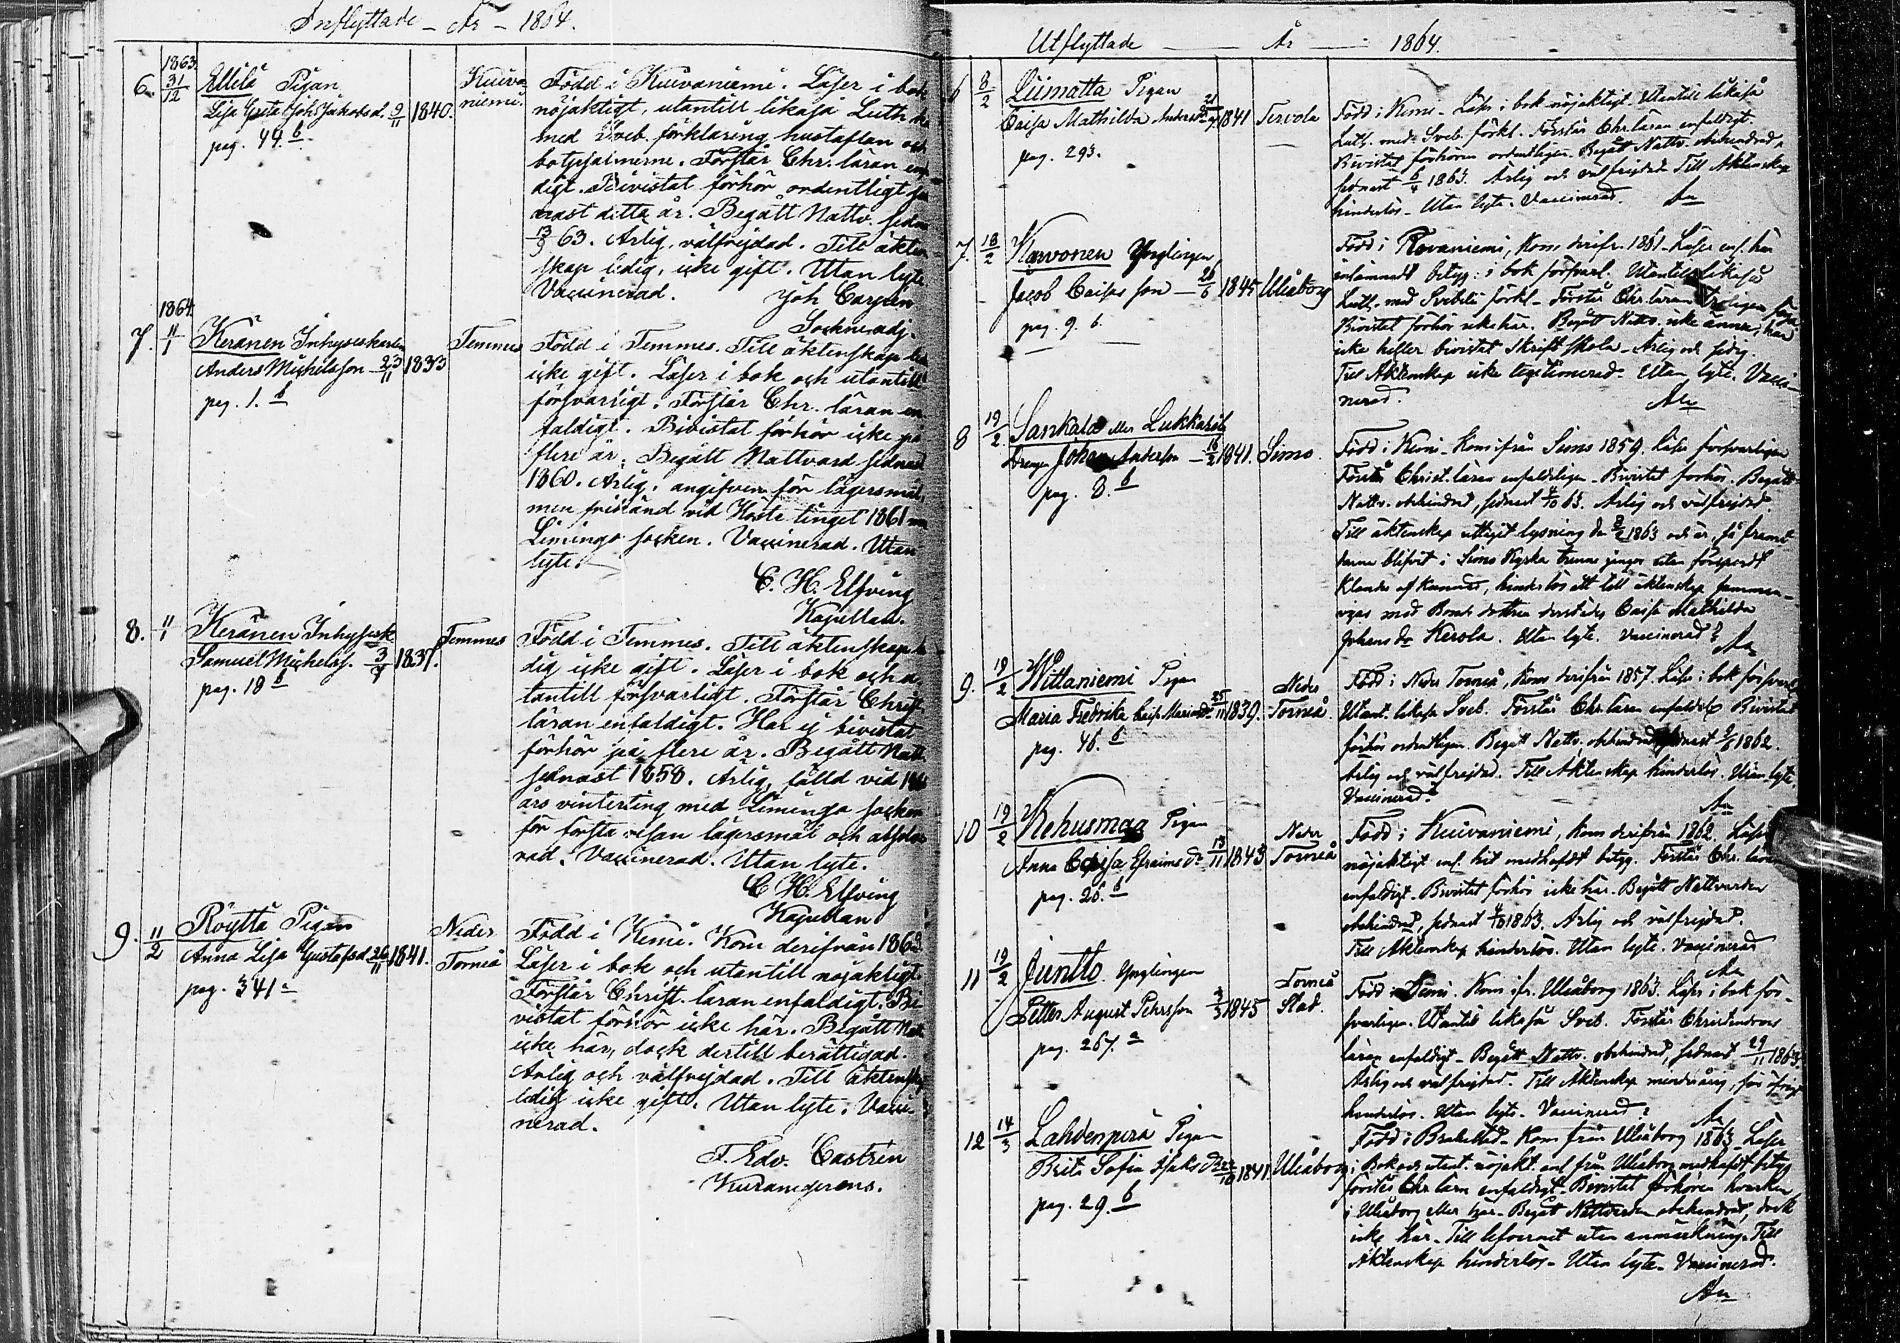 Inflyttade - År - 1864.
6. 1863 31/12 Ellilä Pigan Kuiva- Född i Kuivaniemi. Läser i bok
Lisa Greta Joh. Jakobsd. 9/11 1840. niemi. nöjaktigt, utantill likaså Luth.
pag. 44. b med Sveb. förklaring, hustaflan och
botpsalmerne. Förstår Chr. läran en-
digt. Bivistat förhör ordentligt
nast detta år. Begått Nattv. sedn
13/9 63. Ärlig, välfrejdad. Till äkten-
skap ledig, icke gift. Utan lyte.
Vaccinerad. Joh Carpén
Sockneadj.
7. 1864 11/1 Keränen Inhyseskarlen Temmes Född i Temmes. Till äktenskap
Anders Michelsson 23/11 1833 icke gift. Läser i bok och utantill
pag. 1. b försvarligt. Förstår Chr. läran en-
faldigt. Bivistat förhör icke på
flere år. Begått Nattvard sednast
1860. Ärlig, angifven för lägersmål,
men frikänd vid Höste tinget 1861
Limingo socken. Vaccinerad. Utan
lyte.
C. H. Elfving
Kapellan.
8. 11/1 Keränen Inhysesk Temmes Född i Temmes. Till äktenskap
Samuel Michelss. 3/7 1837. dig icke gift. Läser i bok och u-
pag. 18 b tantill försvarligt. Förstår Christ-
läran enfaldigt. Har ej bivistat
förhör på flere år. Begått Natt
sednast 1858. Ärlig, fälld vid
års vinterting med Limingo socken
för första resan lägersmål och absolve-
rad. Vaccinerad. Utan lyte.
C H Elfving
Kapellan
9. 11/2 Röyttä Pigan Neder Född i Kemi. Kom derifrån 1863
Anna Lisa Gustafsd. 26/11 1841. Torneå Läser i bok och utantill nöjaktigt.
pag. 341 a Förstår Christ. läran enfaldigt. Bi-
vistat förhör icke här. Begått Nattv
icke här, dock dertill berättigad.
Ärlig och välfrejdad. Till äktenskap
ledig icke gift. Utan lyte. Vacci-
nerad.
F. Edv. Castrén
Kuramgerens.
Utflyttade År 1864.
6 8/2 Liimatta Pigan Född i Kemi. Läser i bok nöjaktigt. Utantill likaså
Caisa Mathilda Andersdr 1841 Tervola Luth. med Sveb. förkl. Förstår Chr. läran enfaldigt.
pag. 293. Bivistat förhören ordentligen. Begått Nattv. obehindrad,
sednast 1863. Ärlig och välfrejdad. Till Äktenskap
hinderlös. Utan lyte. Vaccinerad.
7. 18/2 Karvonen Ynglingen Född i Rovaniemi, Kom derifr. 1861. Läser enl. här
inlämnadt betyg: i bok försvarl. Utantill likaså
Jacob Caisas son 20/6 1845 Uleåborg Luth. med Svebelii förkl. Förstår Chr. läran
pag. 9. b. Bivistat förhör icke här. Begått Nattv. icke ännu, har
icke heller bivistat Skriftskola. Ärlig och sedig.
Till Äktenskap icke legitimerad. Utan lyte. Vacci-
nerad.
8 19/2 Sankala eller Lukkarila Född i Kemi. Kom ifrån Simo 1859. Läser försvarligen
Drengen Johan Andersson 1841. Simo. Förstår Christ. läran enfaldigen. Bivistat förhör. Begått
pag. 8. b Nattv. obehindrad, sednast 63. Ärlig och välfrejdad.
Till äktenskap uttagit lysning d. 1863 och är, så framt
denna blifvit i Simo Kyrka trenne gånger utan försport
klander af kunnad, hinderlös att till äktenskap samman-
vigas med Bonde dottren dersides Caisa Mathilda
Johansdr Kerola. Utan lyte. Vaccinerad.
9. 19/2 Wittaniemi Pigan Neder Född i Neder Torneå, Kom derifrån 1857. Läser i bok försvarl
Maria Fredrika Caisa Mariasdr 25/11 1839. Torneå Utant. likaså Sveb. Förstår Chr. läran enfaldigt. Bivistat
pag. 46. b förhör ordentligen. Begått Nattv. obehindrad, sednast 1862.
Ärlig och välfrejdad. Till Äktenskap hinderlös. Utan lyte.
Vaccinerad.
10 19/2 Kehusmaa Pigan Neder Född i Kuivaniemi, Kom derifrån 1862. Läser
Anna Caisa Efraimsdr 13/11 1843 Torneå nöjaktigt enl. hit medhafdt betyg. Förstår Chr. läran
pag. 26. b enfaldigt. Bivistat förhör icke här. Begått Nattvarden
obehindrad, sednast 1863. Ärlig och välfrejdad.
Till Äktenskap hinderlös. Utan lyte. Vaccinerad
11 19/2 Juntto. Ynglingen Torneå Född i Kemi. Kom ifr. Uleåborg 1863. Läser i bok för-
Petter August Pehrsson 3/3 1845 Stad. svarligen. Utantill likaså Sveb. Förstår Christendoms
pag. 267. a läran enfaldigt. Begått Nattv. obehindrad, sednast 29/11 1863.
Ärlig och välfrejdad. Till Äktenskap minderårig, för öfrigt
hinderlös. Utan lyte. Vaccinerad.
12 14/3 Lahdenperä Pigan Född i Brahestad. Kom från Uleåborg 1863. Läser
Brita Sofia Isaksdr 1841 Uleåborg i Bok och utant. nöjakt. enl. från Uleåborg medhafdt betyg
pag. 29. b förstår Chr. läran enfaldigt. Bivistat förhören hvarken
i Uleåborg eller här. Begått Nattvarden obehindrad, dock
icke här. Till lefvernet utan anmärkning. Till
Äktenskap hinderlös. Utan lyte. Vaccinerad.